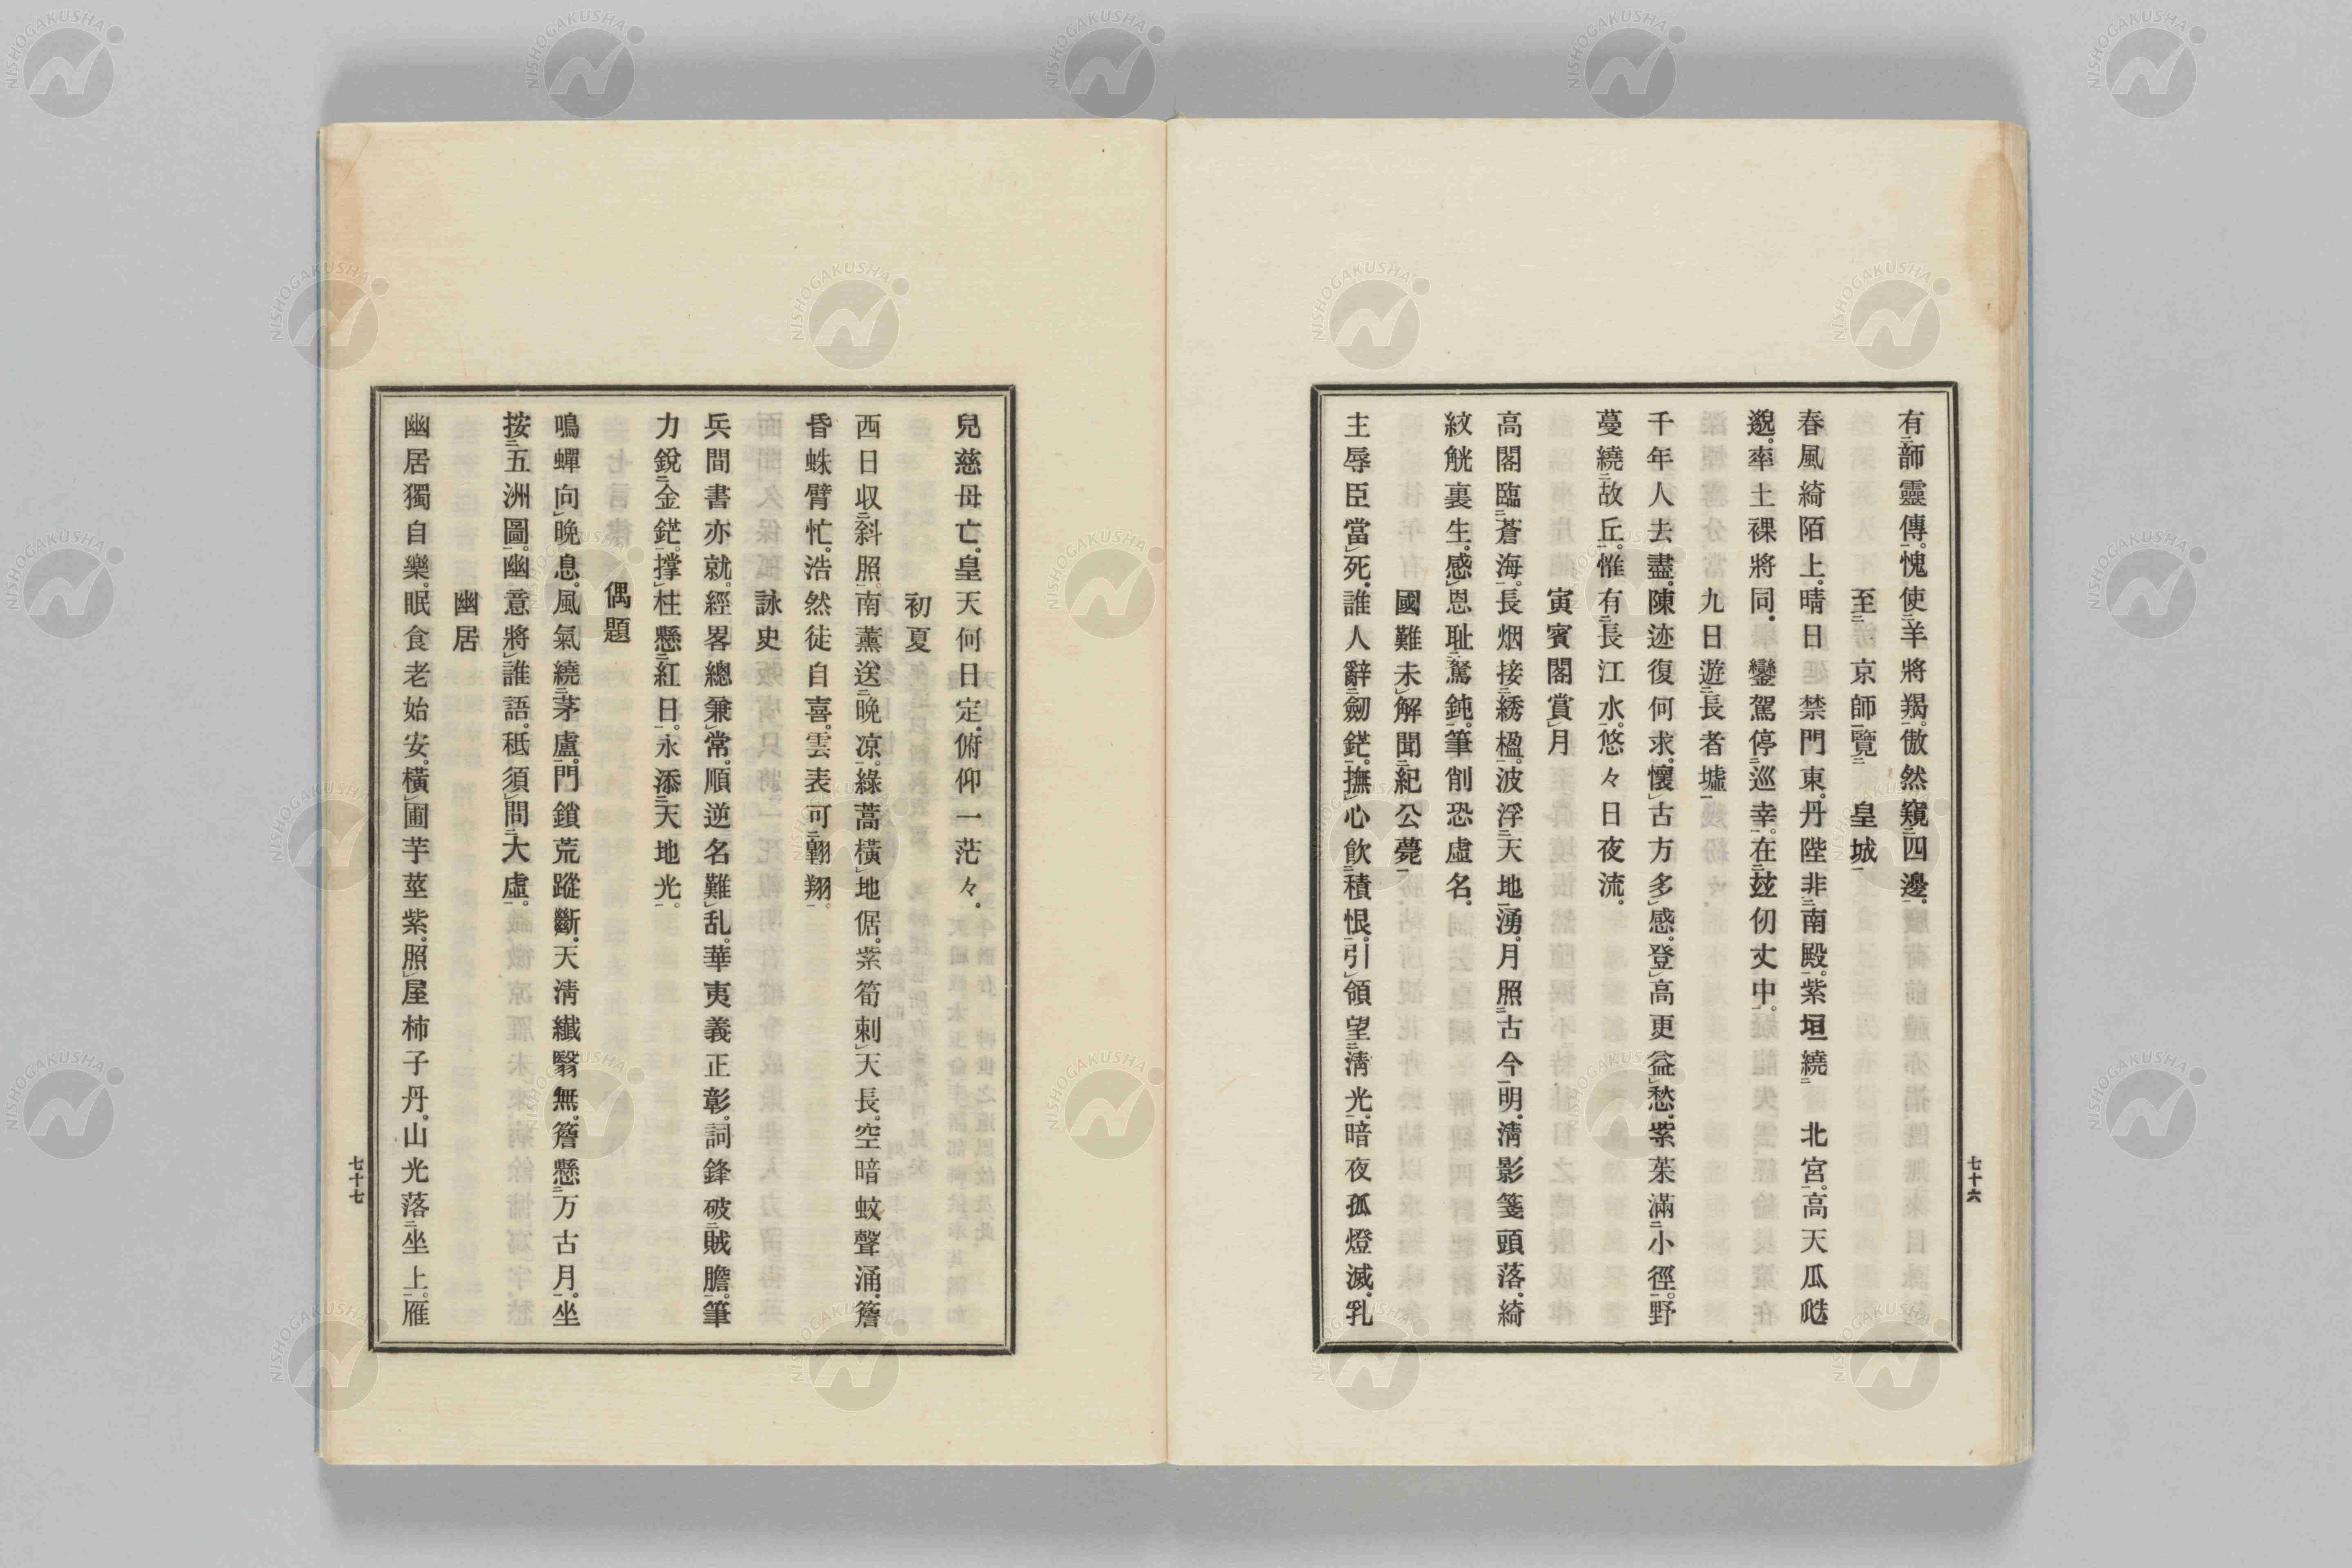 有師靈傳。愧使羊將羯。傲然窺四邊。
至京師覽皇城
春風綺陌上。晴日禁門東。丹陛非南殿。紫垣繞北宮。高天瓜瓞
邈。率土祼將同。鑾駕停巡幸。在玆仞丈中。
九日遊長者墟
千年人去盡。陳迹復何求。懷古方多感。登高更益愁。紫茱滿小徑。野
蔓繞故丘。惟有長江水。悠々日夜流。
寅賓閣賞月
高閣臨蒼海。長烟接綉楹。波浮天地湧。月照古今明。淸影箋頭落。綺
紋觥裏生。感恩耻駑鈍。筆削恐虛名。
國難未解聞紀公薨
主辱臣當死。誰人辭劒鋩。撫心飮積恨。引領望淸光。暗夜孤燈滅。乳
七十六
兒慈母亡。皇天何日定。俯仰一茫々。
初夏
西日収斜照。南薰送晩凉。綠蒿橫地倨。紫筍刺天長。空暗蚊聲涌。簷
昏蛛臂忙。浩然徒自喜。雲表可翺翔。
詠史
兵間書亦就。經畧總兼常。順逆名難乱。華夷義正彰。詞鋒破賊膽。筆
力銳金鋩。撑柱懸紅日。永添天地光。
偶題
鳴蟬向晩息。風氣繞茅盧。門鎖荒蹤斷。天淸纖翳無。簷懸万古月。坐
按五洲圖。幽意將誰語。秪須問大虛。
幽居
幽居獨自樂。眠食老始安。橫圃芋莖紫。照屋柿子丹。山光落坐上。雁
七十七
NISHOGAKUSHA